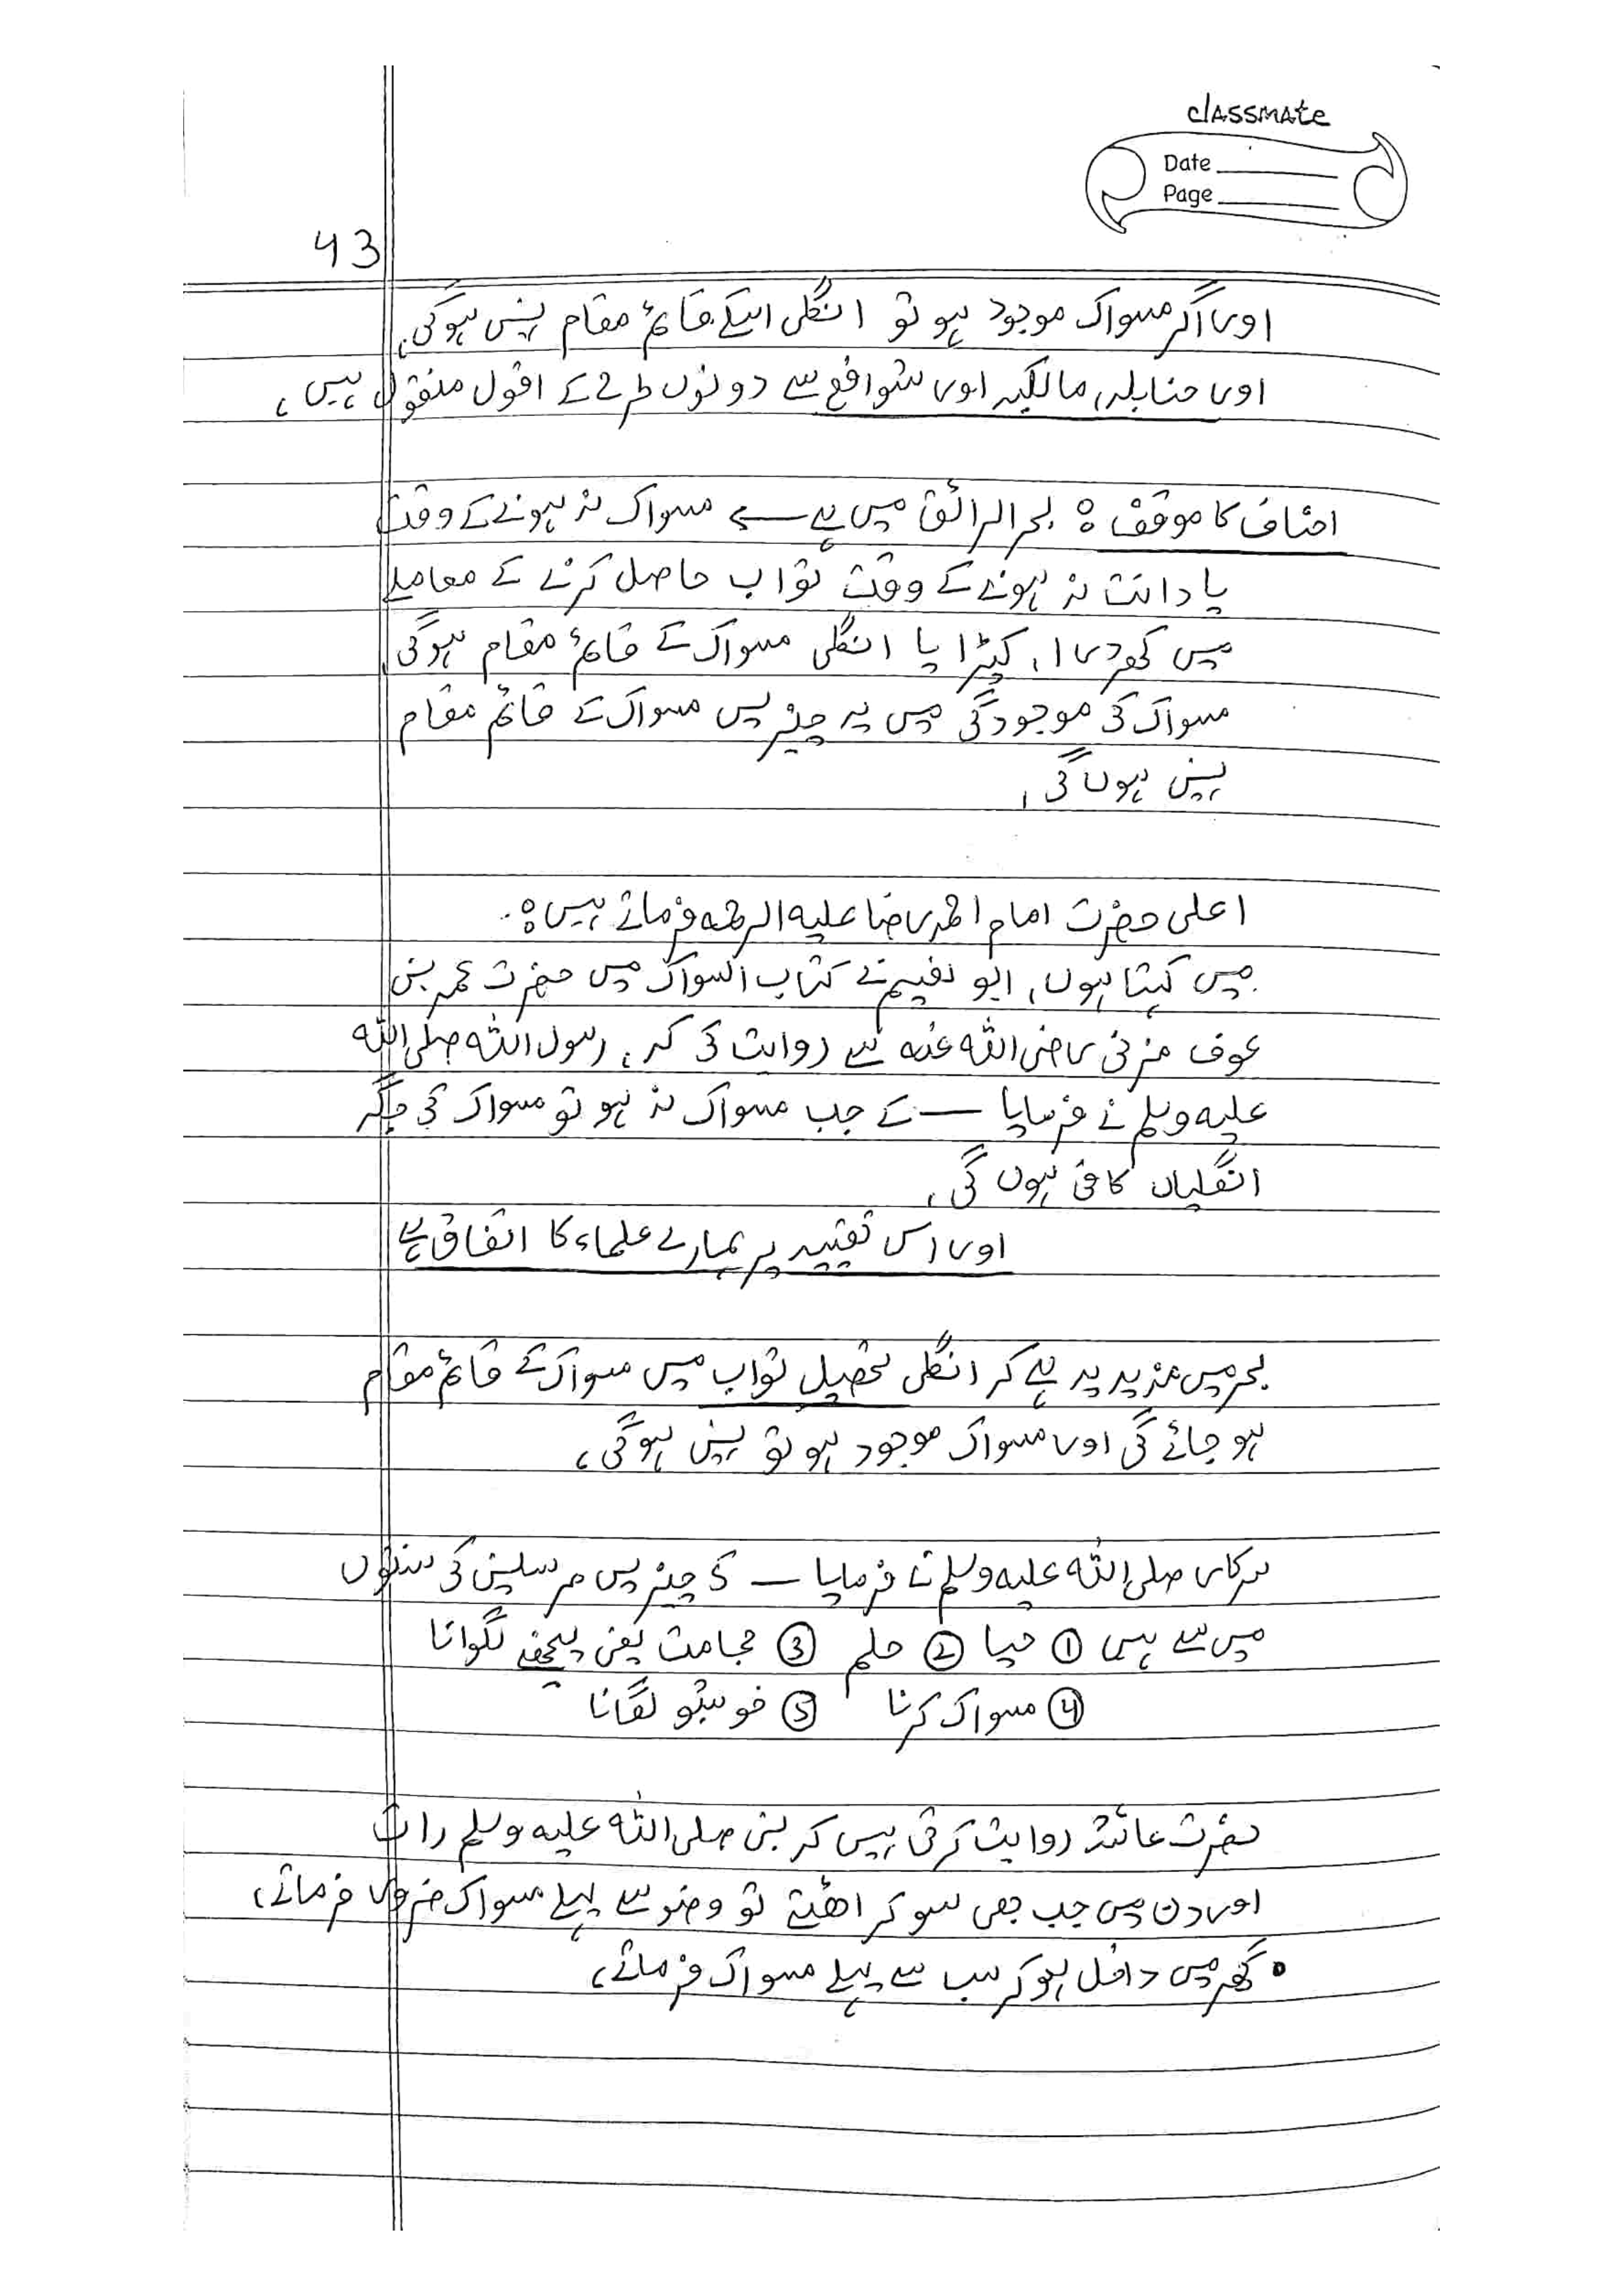 classmate
Date
Page
43
اور اگر مسواک موجود ہو تو انگلی اسکے قائم مقام نہیں ہوگی،
اور حنابلہ، مالکیہ اور شوافع سے دونوں طرح کے اقول منقول ہیں،
احناف کا موقف : بحر الرائق میں ہے ← مسواک نہ ہونے کے وقت
یا دانت نہ ہونے کے وقت ثواب حاصل کرنے کے معاملے
میں کھردرا، کپڑا یا انگلی مسواک کے قائم مقام ہوگی،
مسواک کی موجودگی میں یہ چیزیں مسواک کے قائم مقام
نہیں ہوں گی،
اعلی حضرت امام احمد رضا علیہ الرحمہ فرماتے ہیں :
میں کہتا ہوں، ابو نعیم نے کتاب السواک میں حضرت عمر بن
عوف مزنی رضی اللہ عنہ سے روایت کی کہ، رسول اللہ صلی اللہ
علیہ وسلم نے فرمایا — کے جب مسواک نہ ہو تو مسواک کی جگہ
انگلیاں کافی ہوں گی،
اور اس تقیید پر ہمارے علماء کا اتفاق ہے
بحر میں مزید یہ ہے کہ انگلی تحصیل ثواب میں مسواک کے قائم مقام
ہو جائے گی اور مسواک موجود ہو تو نہیں ہوگی،
سرکار صلی اللہ علیہ وسلم نے فرمایا — 5 چیزیں مرسلین کی سنتوں
میں سے ہیں ① حیا ② حلم ③ حجامت یعنی پچھنے لگوانا
④ مسواک کرنا ⑤ خوشبو لگانا
حضرت عائشہ روایت کرتی ہیں کہ نبی صلی اللہ علیہ وسلم رات
اور دن میں جب بھی سو کر اٹھتے تو وضو سے پہلے مسواک ضرور فرماتے،
• گھر میں داخل ہو کر سب سے پہلے مسواک فرماتے،